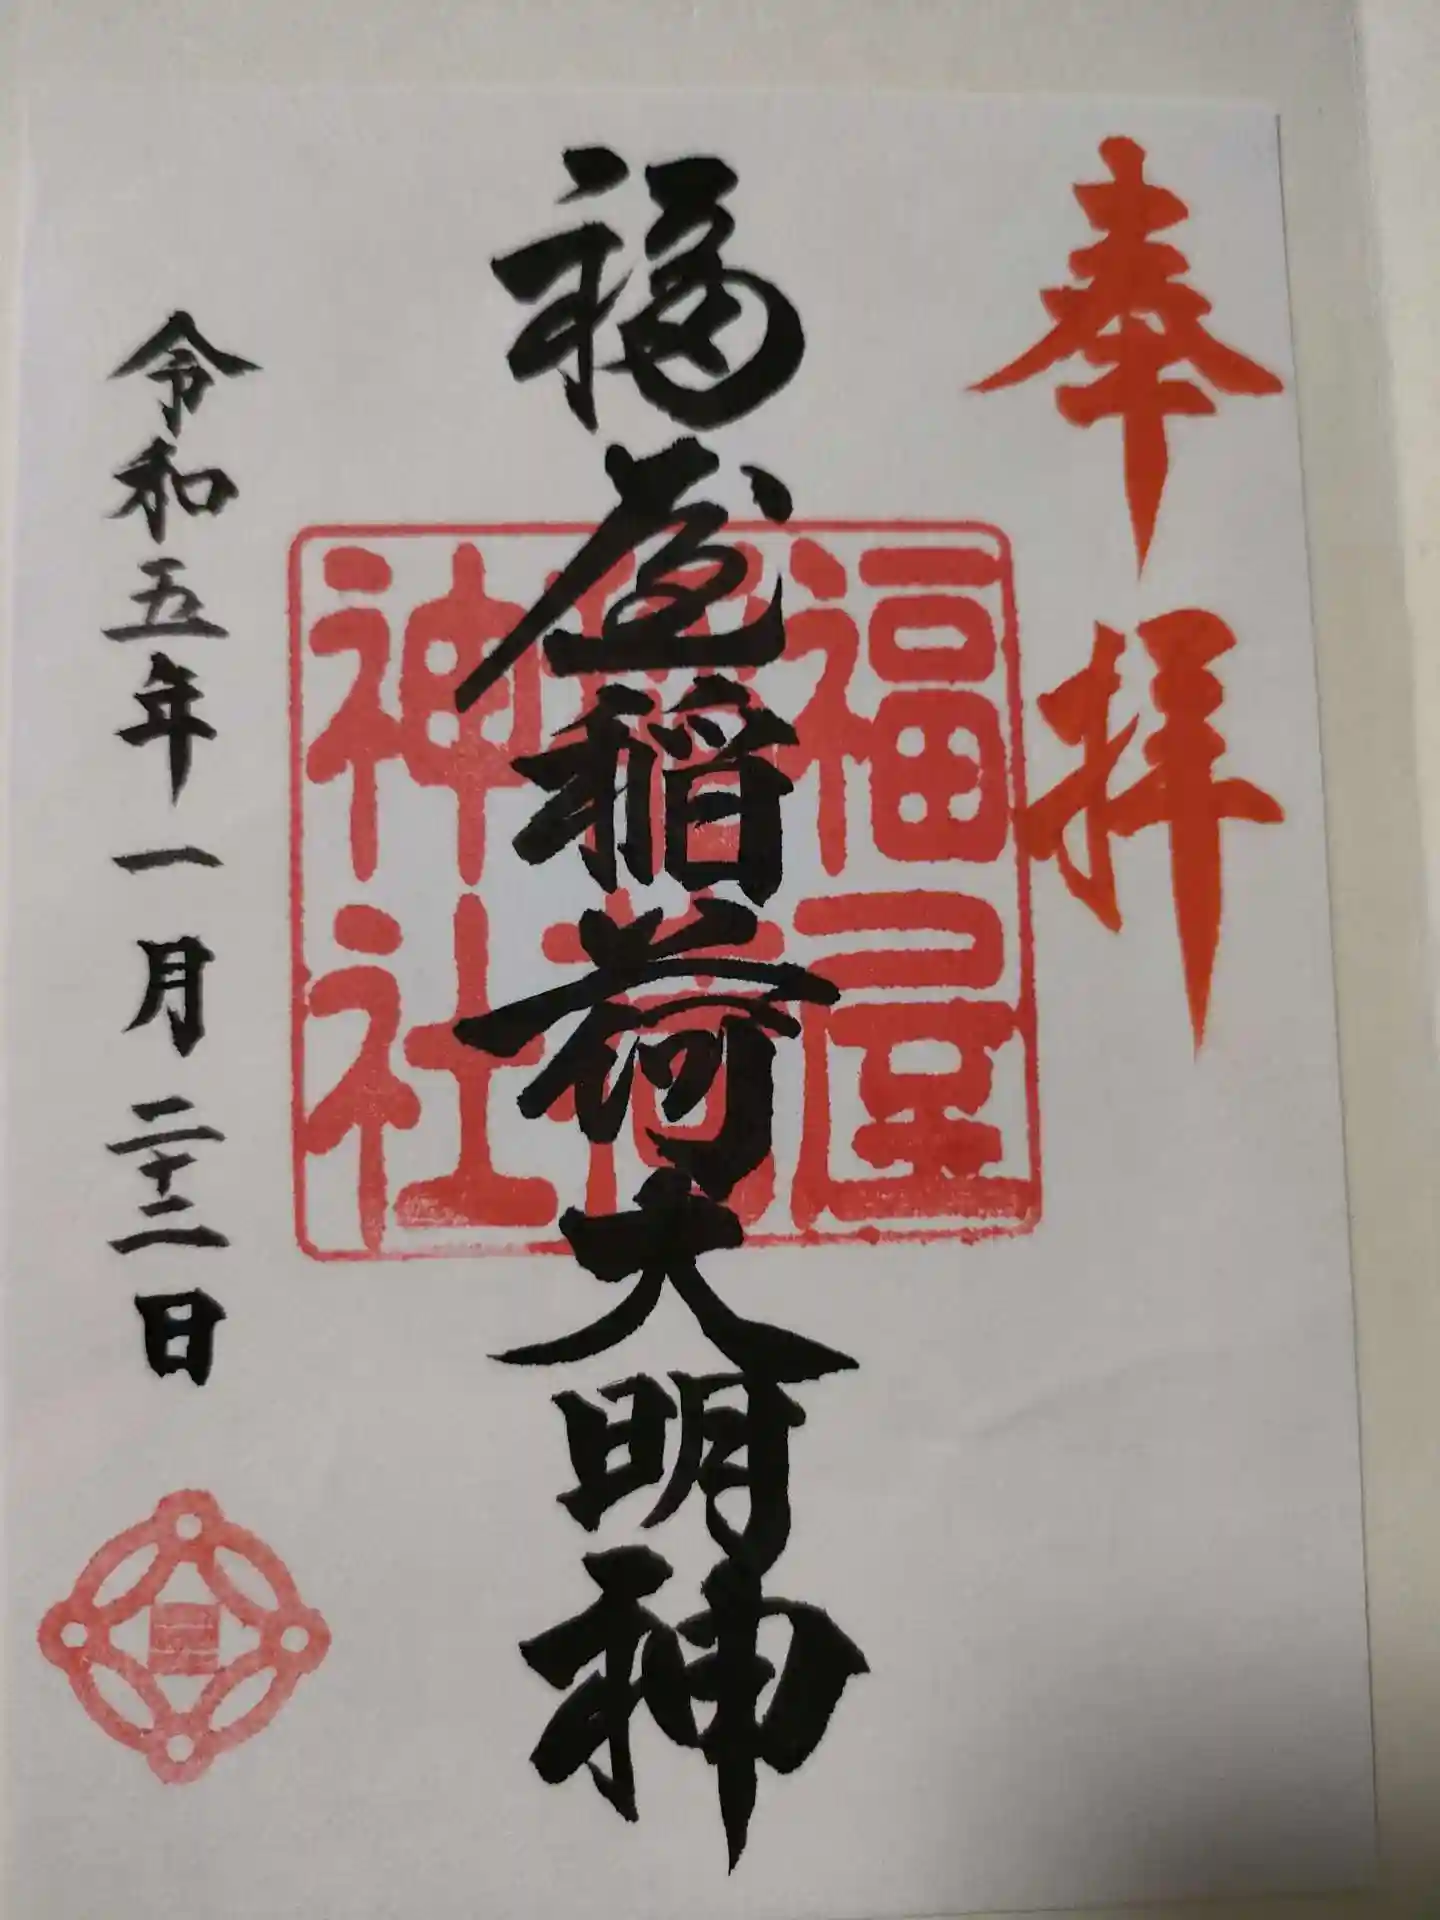 奉拝
福屋稲荷大明神
福屋
稲荷
神社
令和五年一月二十二日